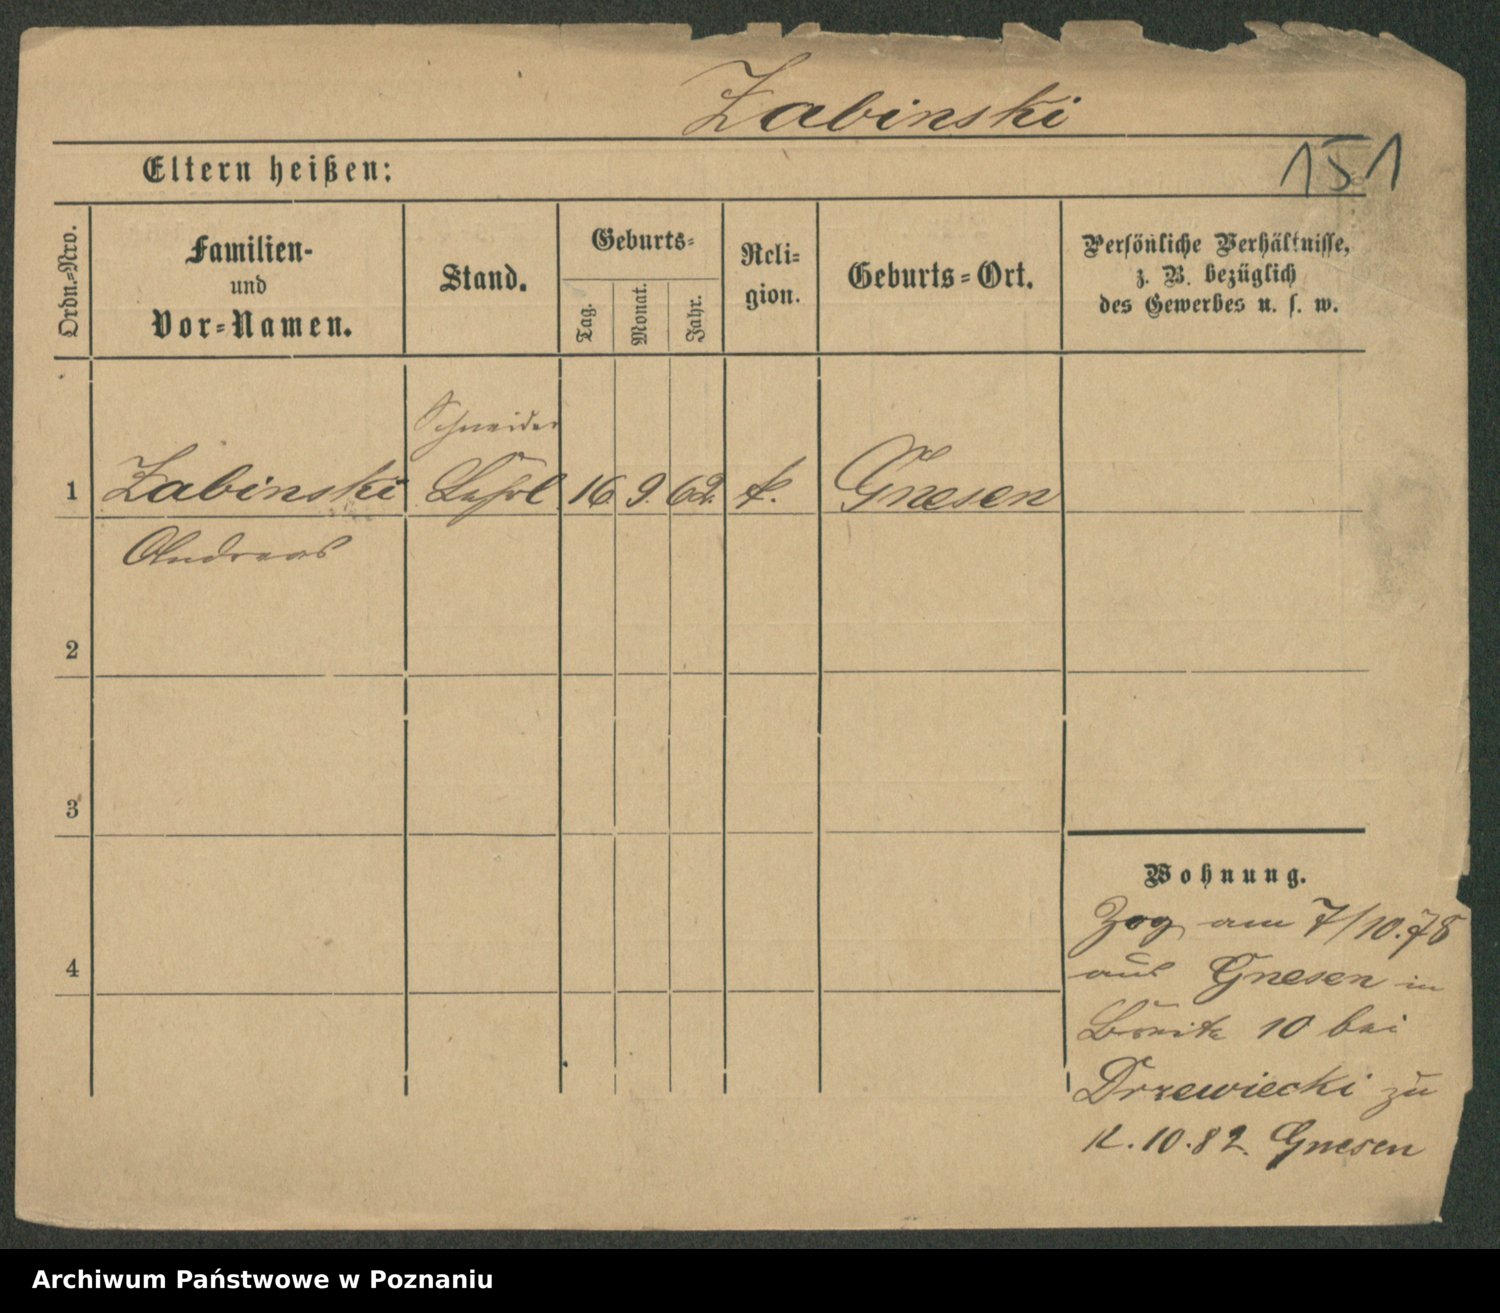 Zabinski
151
Eltern heißen:
Ordn.-Nro.
Familien-
und
Vor-Namen.
Stand.
Geburts-
Tag.
Monat.
Jahr.
Reli-
gion.
Geburts-Ort.
Persönliche Verhältnisse,
z. B. bezüglich
des Gewerbes u. s. w.
Schneider
1 Zabinski 16 9. 62. k. Gnesen
Andreas
2
3
4
Wohnung.
Zog am 7/10.78
aus Gnesen in
Breite 10 bei
Drzewiecki zu
12.10.82. Gnesen
Archiwum Państwowe w Poznaniu